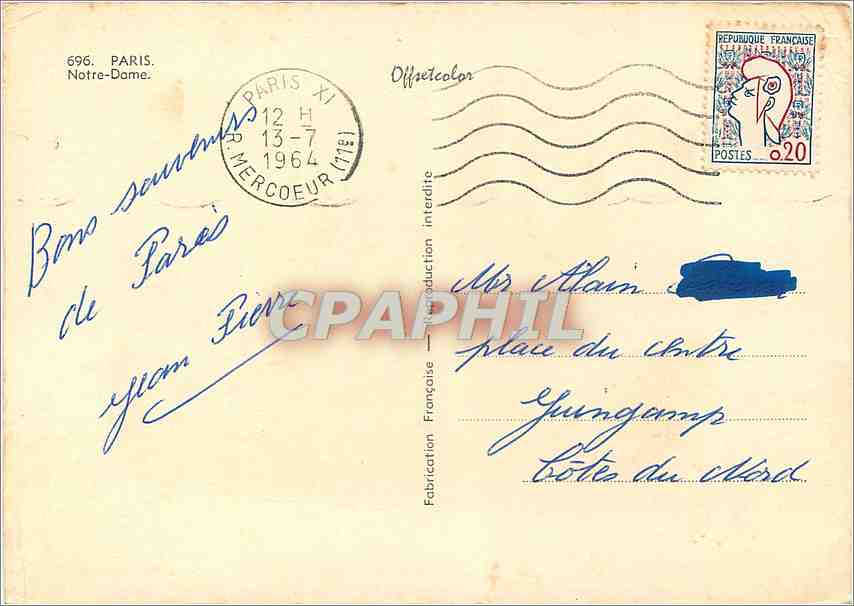 696. PARIS.
Notre-Dame.
Offsetcolor
PARIS XI
12 H
13-7
1964
R. MERCOEUR (11E)
REPUBLIQUE FRANÇAISE
POSTES
0,20
Bons souvenirs
de Paris
Jean Pierre
Fabrication Française — Reproduction interdite
CPAPHIL
Mr Alain
place du centre
Guingamp
Côtes du Nord